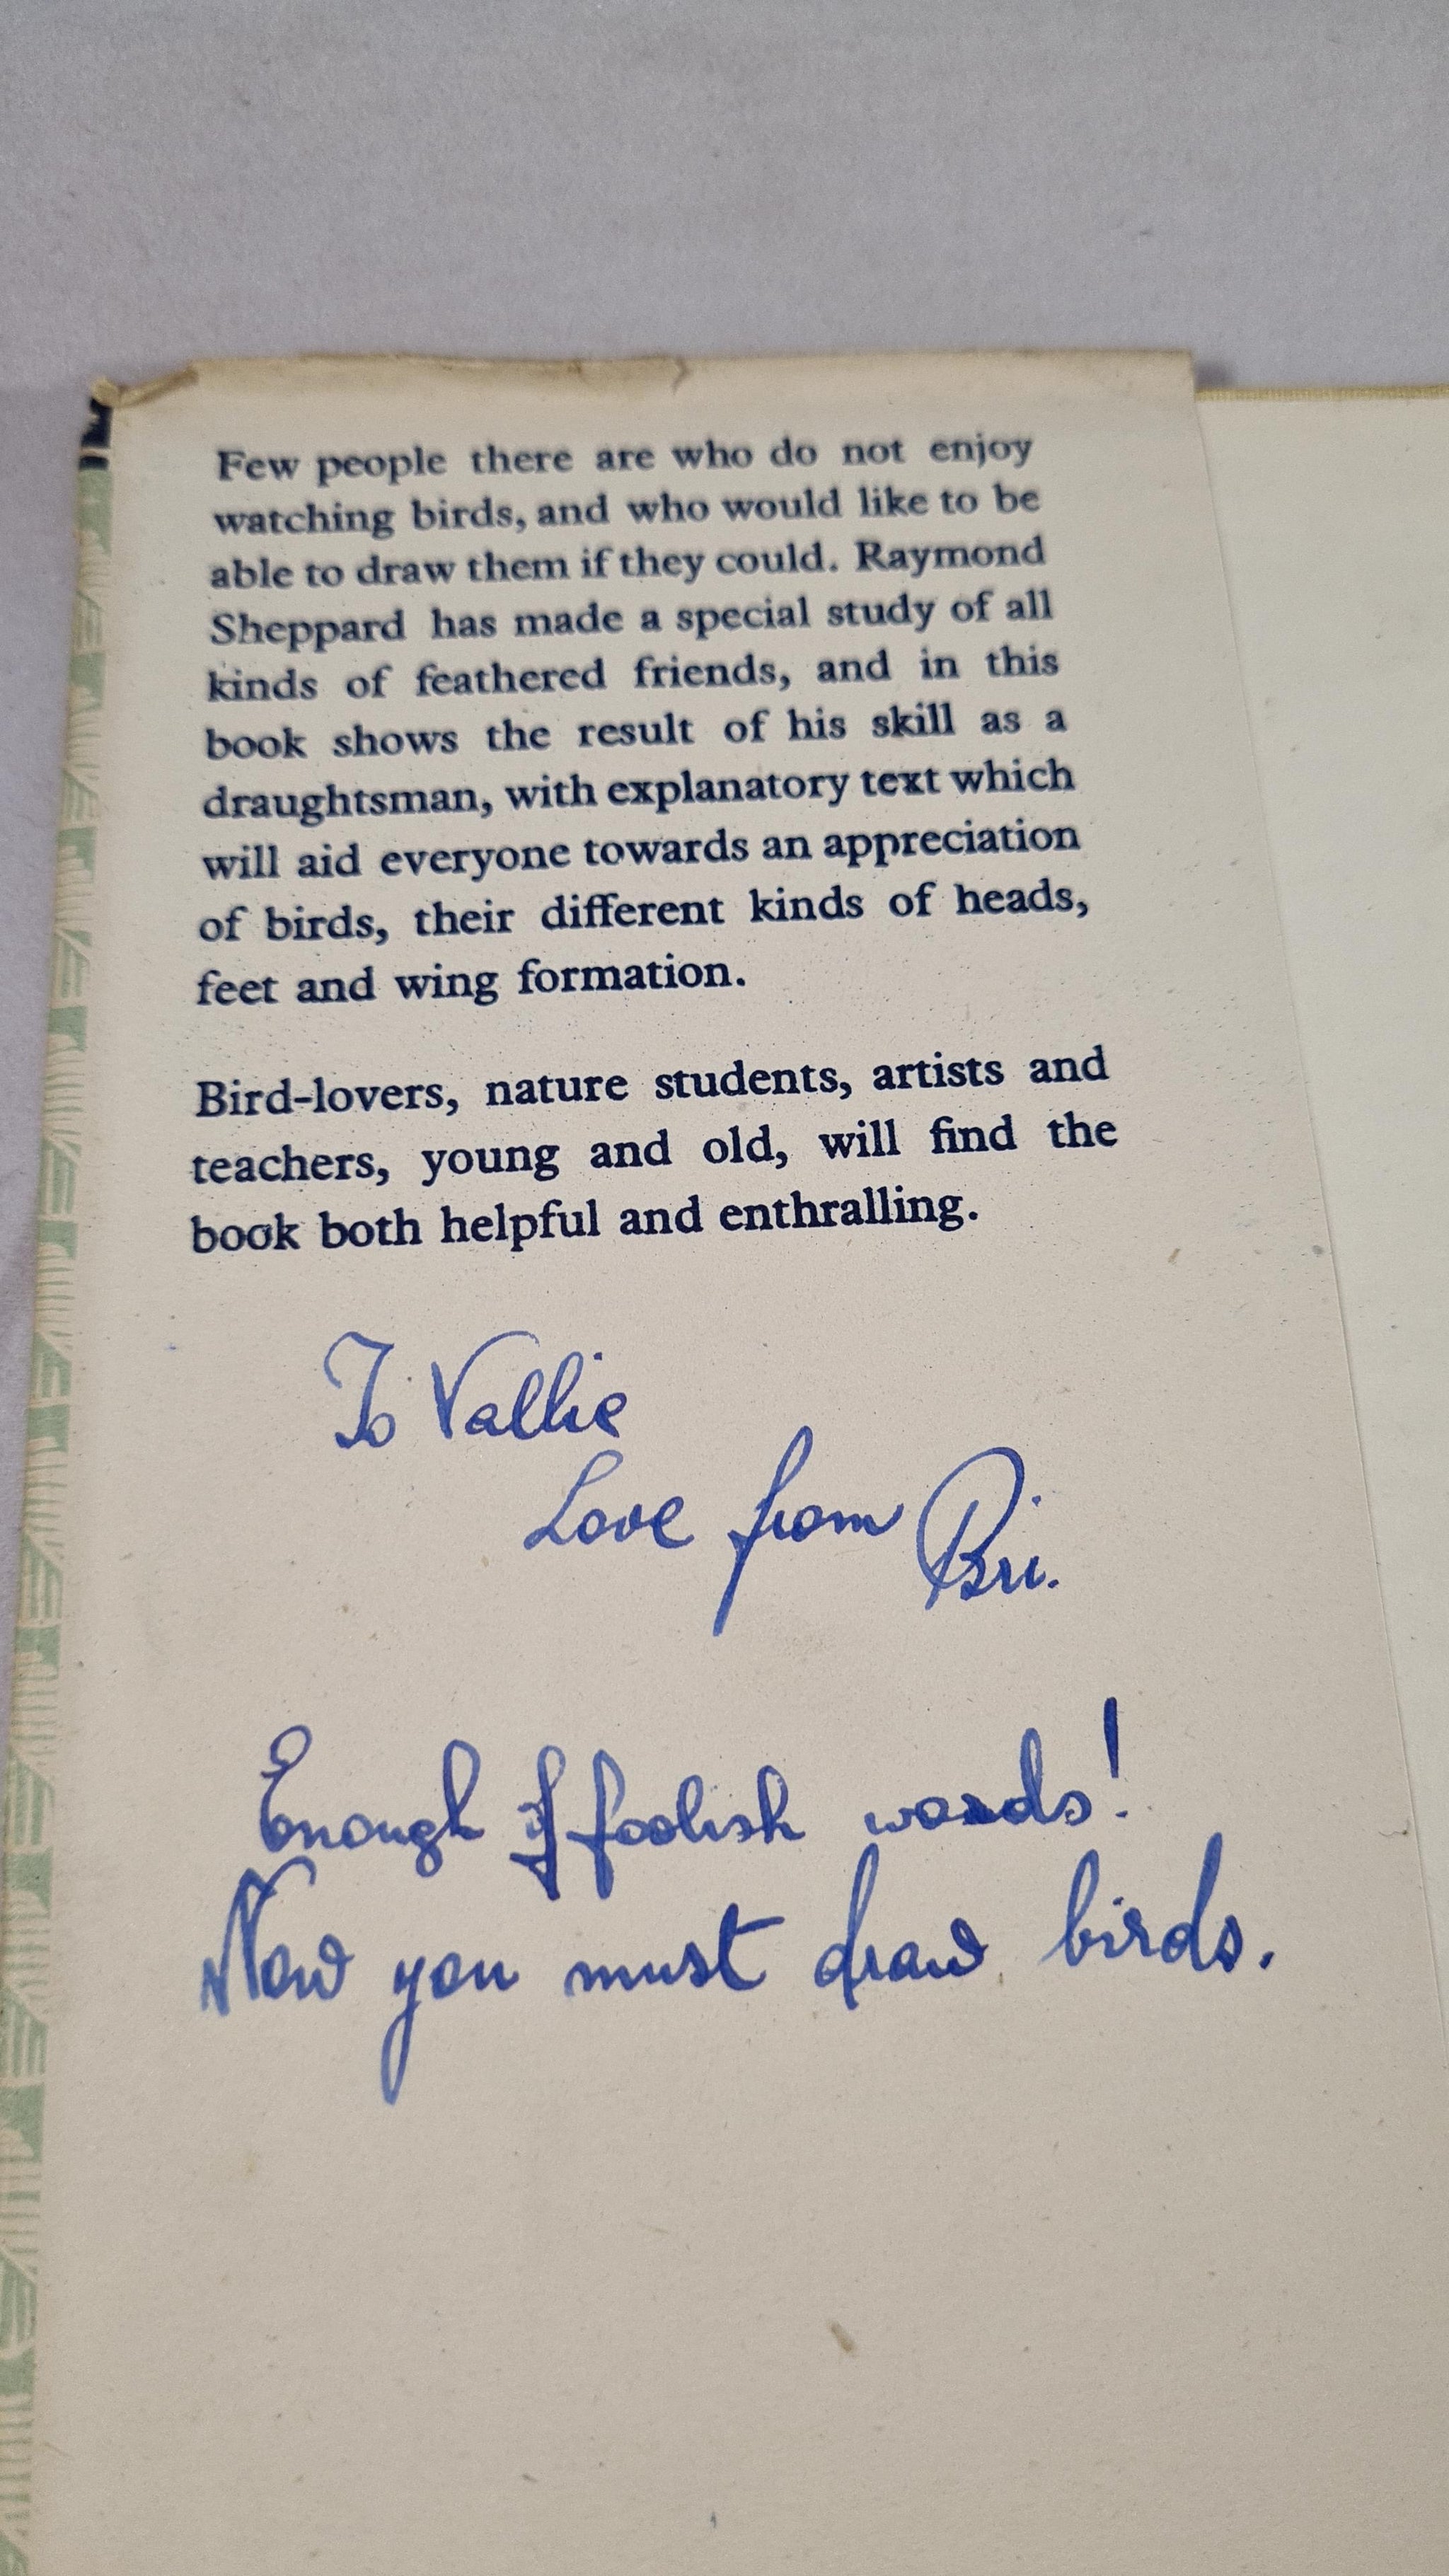 Few people there are who do not enjoy
watching birds, and who would like to be
able to draw them if they could. Raymond
Sheppard has made a special study of all
kinds of feathered friends, and in this
book shows the result of his skill as a
draughtsman, with explanatory text which
will aid everyone towards an appreciation
of birds, their different kinds of heads,
feet and wing formation.
Bird-lovers, nature students, artists and
teachers, young and old, will find the
book both helpful and enthralling.
To Vallie
Love from Bri.
Enough of foolish words!
Now you must draw birds.